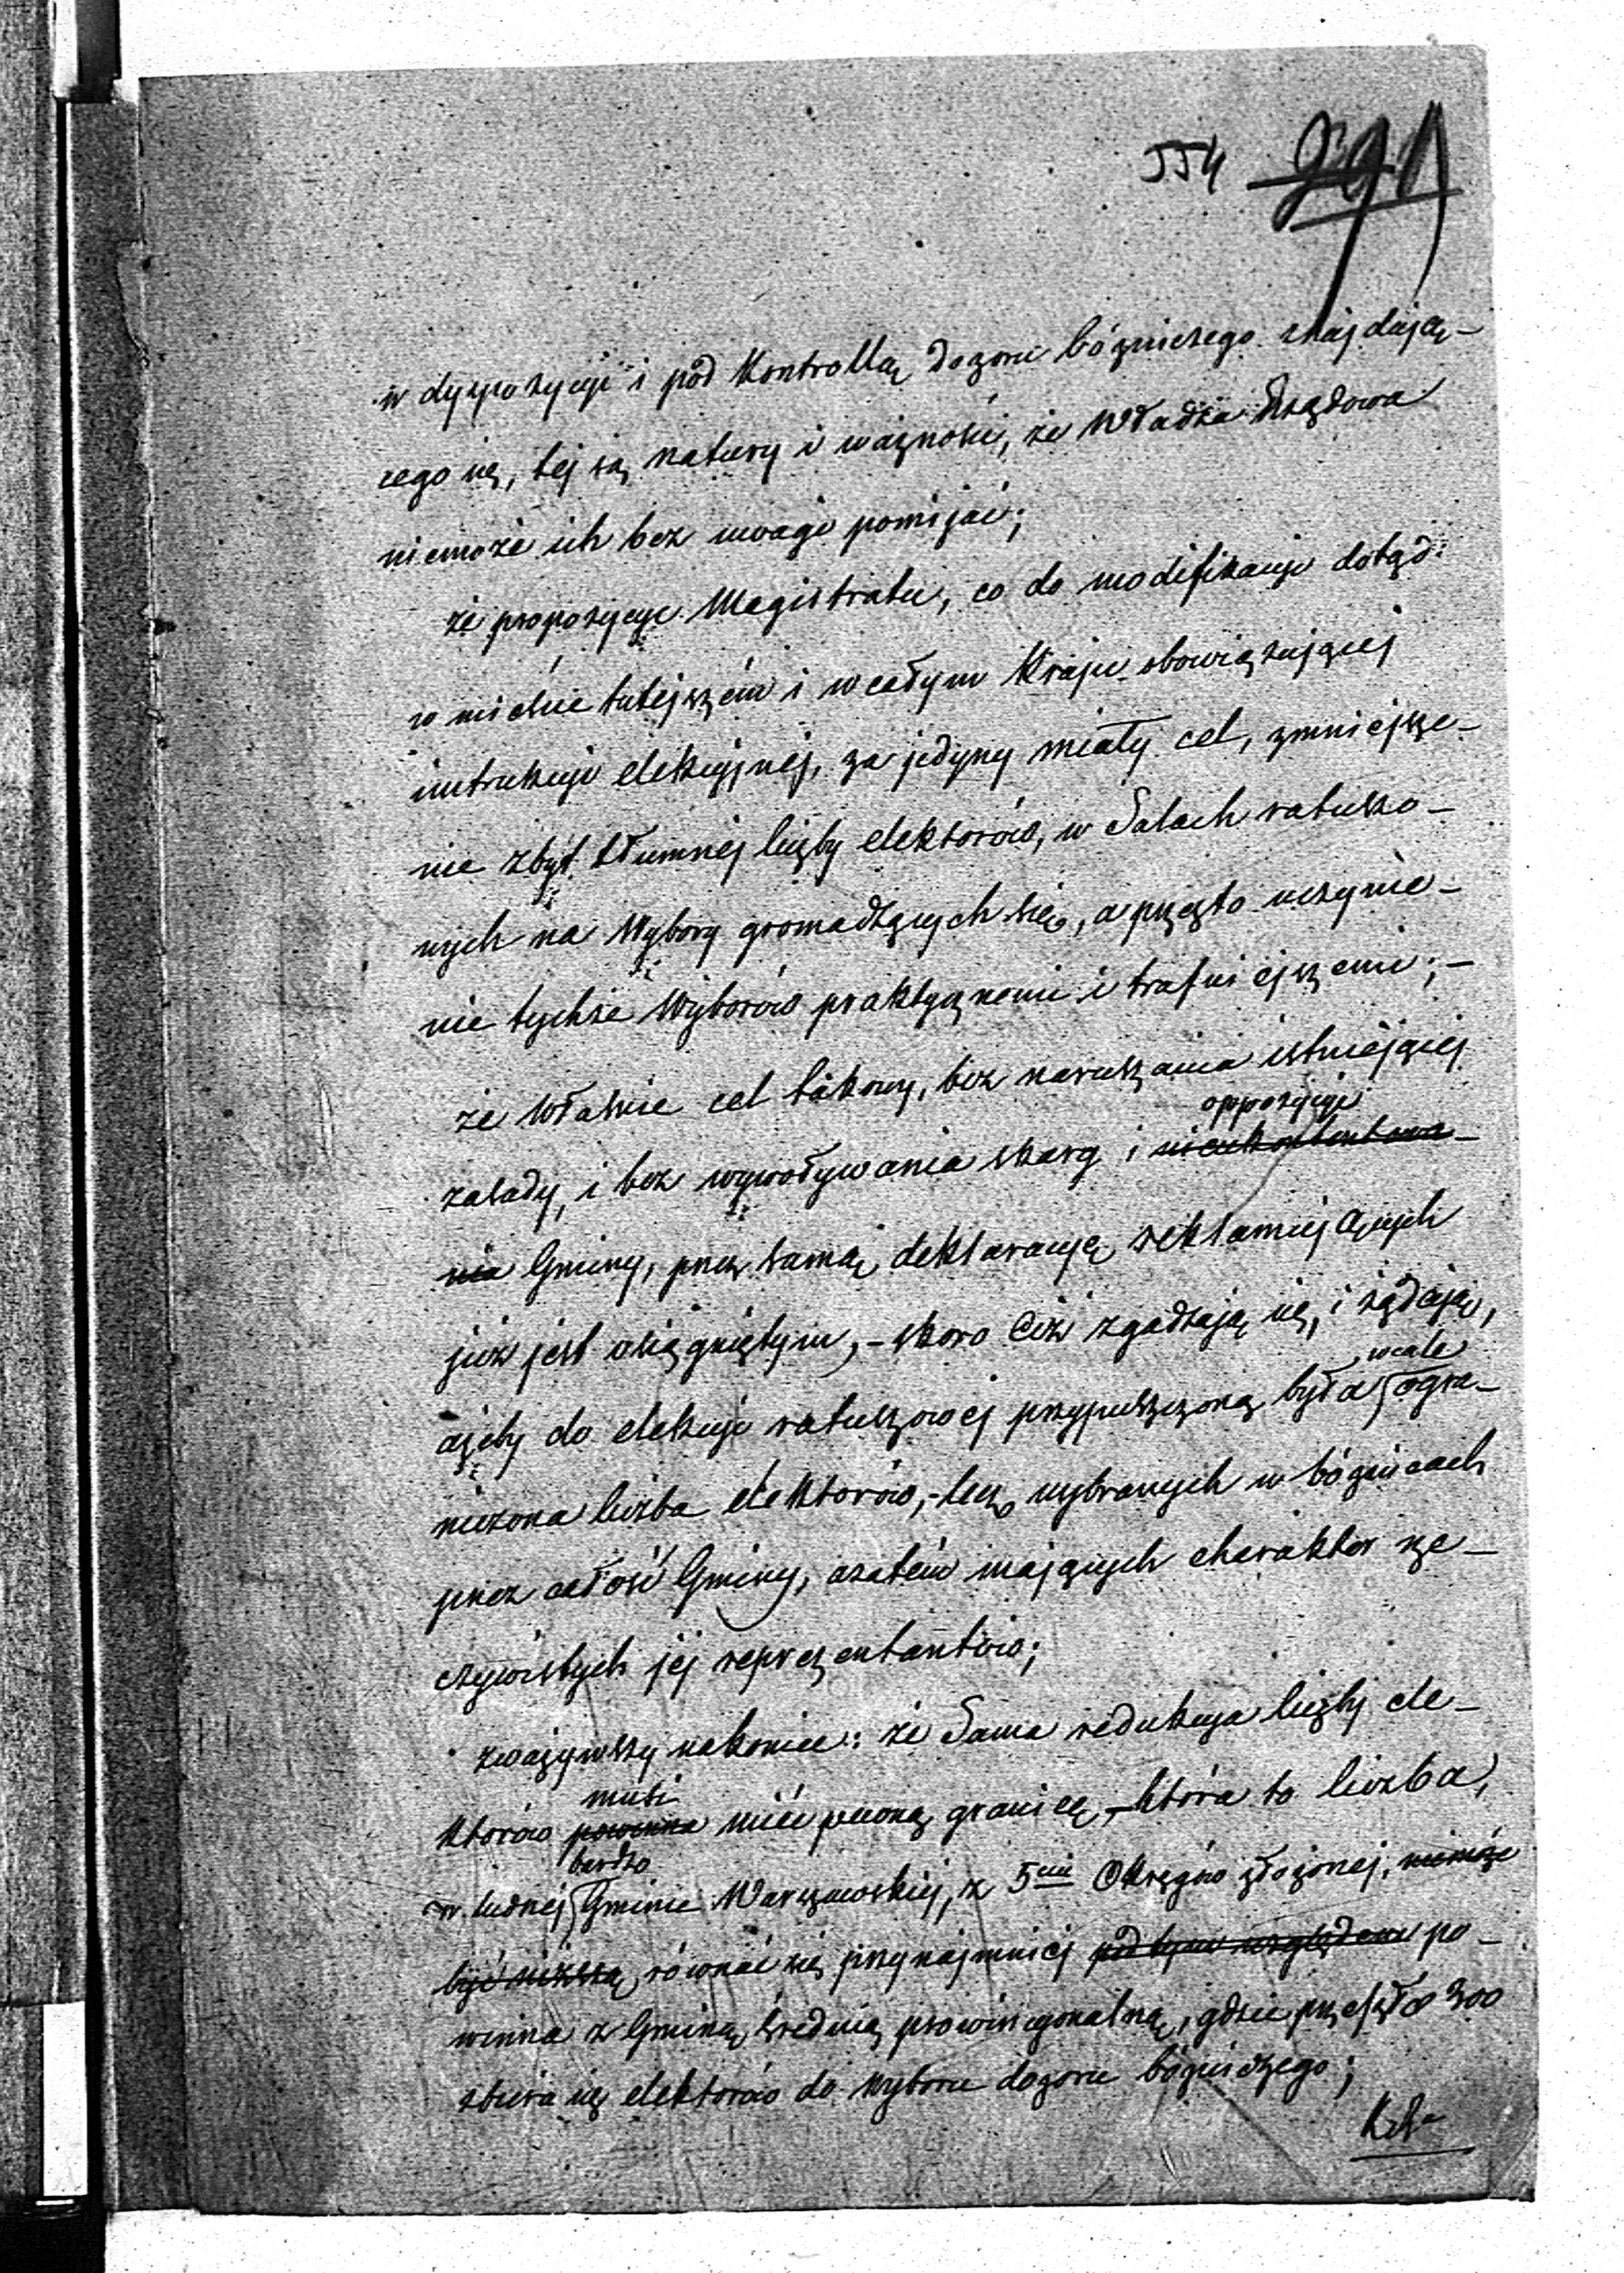 554
w dyspozycyi i pod Kontrollą dozoru bóżniczego znajdują-
cego się, tej są natury i ważności, że Władza Rządowa
niemoże ich bez uwagi pomijać;
że propozycye Magistratu, co do modifikacyi dotąd
w mieście tutejszém i w całym Kraju obowiązującej
instrukcyi elekcyjnéj, za jedyny miały cel, zmniejsze-
nie zbyt tłumnej liczby elektorów, w Salach ratuszo-
wych na Wybory gromadzących się, a przezto uczynie-
nie tychże Wyborów praktycznemi i trafniejszemi; -
że właśnie cel takowy, bez naruszania istniejącej
oppozycyi
zasady, i bez wywoływania skarg i nieukontentowa-
nia Gminy, przez samą deklaracyą reklamujących
już jest osiągniętym, - skoro Ciż zgadzają się, i żądają,
wcale
ażeby do elekcyi ratuszowej przypuszczoną była ogra-
niczona liczba elektorów, - lecz wybranych w bóżnicach
przez całość Gminy, azatém mających charakter rze-
czywistych jej reprezentantów;
zważywszy nakoniec: że Sama redukcya liczby ele-
musi
ktorów powinna mieć pewną granicę, - która to liczba,
bardzo
w ludnej Gminie Warszawskiej, z 5ciu Okręgów złożonej, niemoże
być niższą, równać się przynajmniej pod tym względem po-
winna z Gminą średnią prowincyonalną, gdzie przeszło 300
zbiera się elektorów do wyboru dozoru bóżniczego;